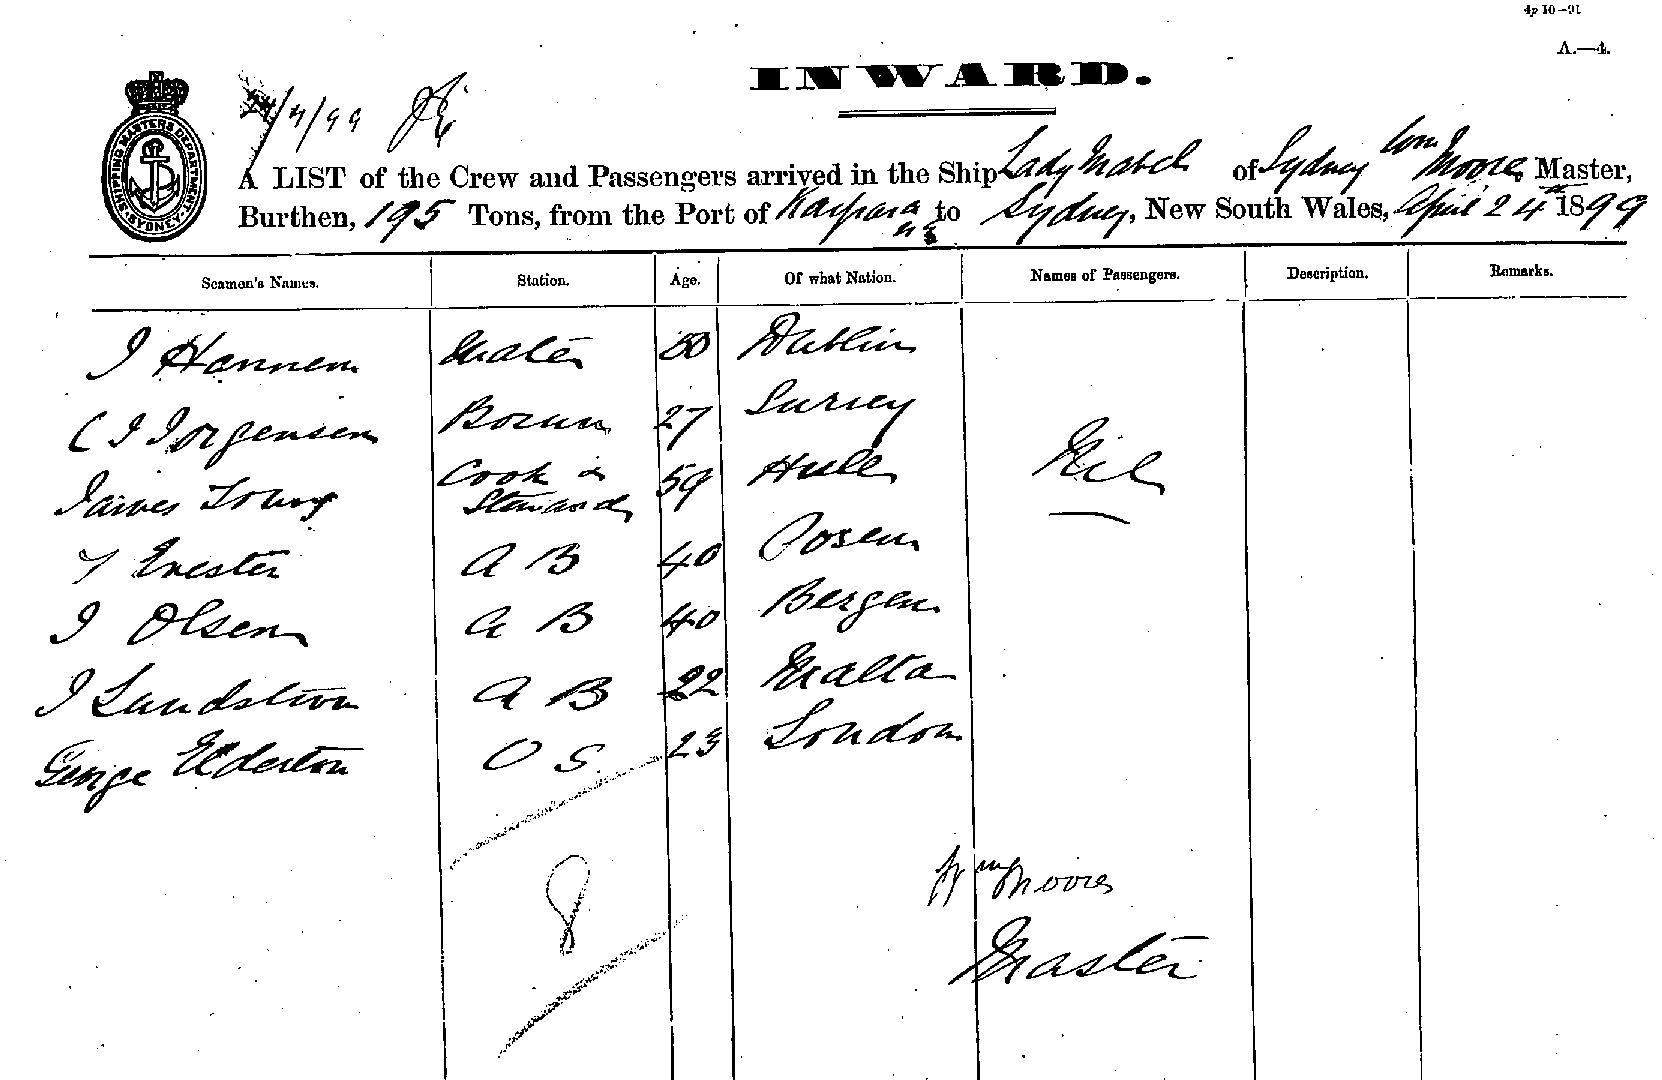 4p 10—91
A.—4.
INWARD.
24/4/99
A LIST of the Crew and Passengers arrived in the Ship Lady Mabel of Sydney Wm Moore, Master,
Burthen, 195 Tons, from the Port of Kaipara NZ to Sydney, New South Wales, April 24th 1899
SHIPPING MASTERS DEPARTMENT · SYDNEY ·
Seamen's Names. Station. Age. Of what Nation. Names of Passengers. Description. Remarks.
J Hannem Mate 50 Dublin
C J Jorgensen Bosun 27 Surrey
James Young Cook & Steward 59 Hull Nil
Erester A B 40 Posen
J Olsen A B 40 Bergen
J Lundstrom A B 22 Malta
George Elderton O S 23 London
8
Wm Moore
Master